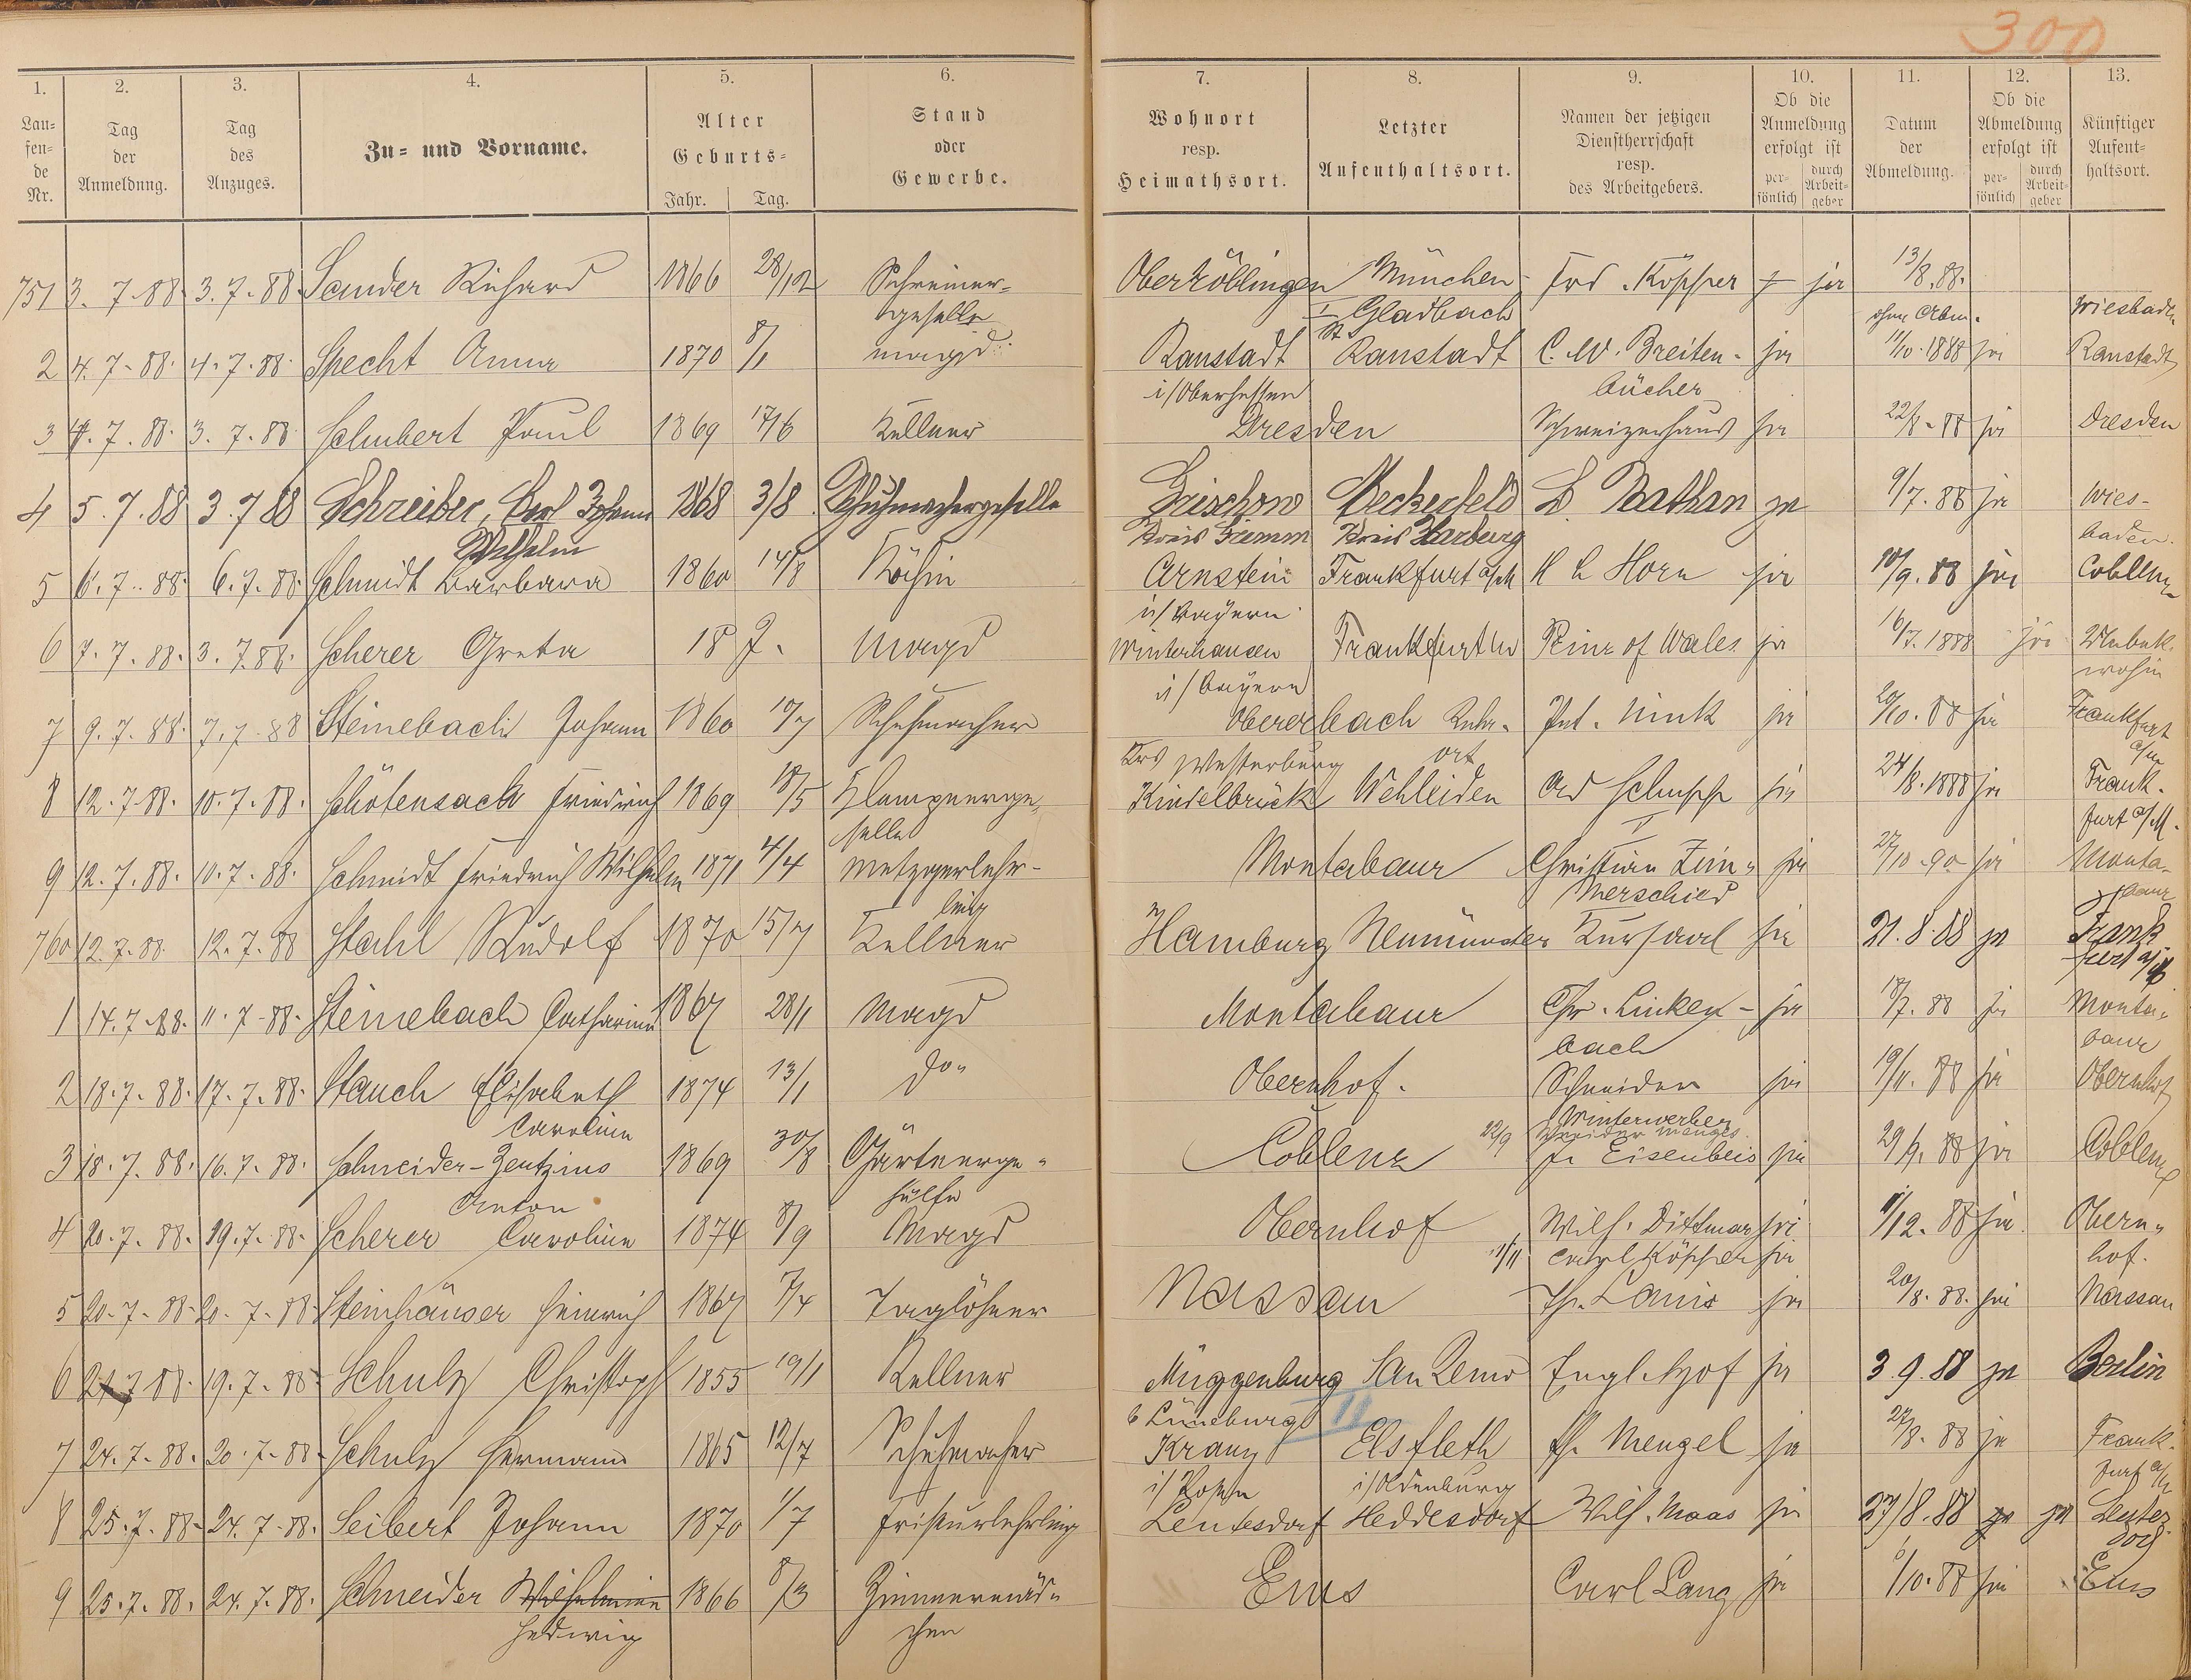 300
1. 2. 3. 4. 5. 6. 7. 8. 9. 10. 11. 12. 13.
Lau=fen=de Nr. Tag der Anmeldung. Tag des Anzuges. Zu= und Vorname. Alter Geburts= Jahr. Tag. Stand oder Gewerbe. Wohnort resp. Heimathsort. Letzter Aufenthaltsort. Namen der jetzigen Dienstherrschaft resp. des Arbeitgebers. Ob die Anmeldung erfolgt ist per=sönlich durch Arbeit=geber Datum der Abmeldung. Ob die Abmeldung erfolgt ist per=sönlich durch Arbeit=geber Künftiger Aufent=haltsort.
751 3. 7. 88. 3. 7. 88. Sander Richard 1866 28/12 Schreiner= Oberröblingen München Frd. Köpper ja 13/8. 88.
geselle Gladbach ohne Abm. Wiesbaden
2 4. 7. 88. 4. 7. 88. Specht Anna 1870 8/1 magd. Ranstadt Ranstadt C. W. Breiten- ja 11/10. 1888 ja Ranstadt
i/Oberhessen bücher
3 4. 7. 88. 3. 7. 88 Schubert Paul 1869 17/6 Kellner Dresden Schweizerhaus ja 22/8. 88 ja Dresden
4 5. 7. 88 3. 7 88 Schreiber, Carl Johann 1868 3/8 Schuhmachergeselle Grischow Meckelfeld L. Nathan ja 9/7. 88 ja Wies-
Wilhelm Kreis Grimm Kreis Harburg baden.
5 6. 7. 88. 6. 7. 88. Schmidt Barbara 1860 14/8 Köchin Arnstein Frankfurt a/M H L Horn ja 10/9. 88 ja Coblenz
i/Bayern
6 7. 7. 88. 3. 7 88. Scherer Greta 18 J. Magd Winterhausen Frankfurt M Prinz of Wales ja 16/7. 1888 ja Unbek.
i/Bayern wohin
7 9. 7. 88. 7. 7. 88 Steinebach Johann 1860 10/7 Schuhmacher Obererbach Ruhr- Ant. Nink ja 20/10. 88 ja Frankfurt
Krs Westerburg ort a/M
8 12. 7. 88. 10. 7. 88. Schötensack Friedrich 1869 18/5 Klempnerge- Kindelbrück Wehleiden Ad Schupp ja 24/8. 1888 ja Frank-
selle furt a/M.
9 12. 7. 88. 10. 7. 88. Schmidt Friedrich Wilhelm 1871 4/4 Metzgerlehr- Montabaur Christian Zim- ja 27/10. 90 ja Monta-
ling merschied baur
760 12. 7. 88. 12. 7. 88 Stahl Rudolf 1870 15/7 Kellner Hamburg Neumünster Kursaal ja 21. 8. 88 ja Frank
furt a/M
1 14. 7. 88. 11. 7. 88. Steinebach Catharina 1867 28/1 Magd Montabaur Chr. Linken- ja 18/7. 88 ja Monta-
bach baur
2 18. 7. 88. 17. 7. 88. Stauch Elisabeth 1874 13/1 do. Obernhof. Schneider ja 19/11. 88 ja Obernhof
Caroline Winterwerber
3 18. 7. 88. 16. 7. 88. Schneider-Gentzius 1869 30/8 Gärtnerge- Coblenz 22/9 Fr Eisenbeis ja 29/9. 88 ja Coblenz
Anton hülfe
4 20. 7. 88. 19. 7. 88. Scherer Caroline 1874 8/9 Magd Obernhof Wilh. Dittmar ja 1/12. 88 ja Obern-
1/11 Carl Köpper ja hof.
5 20. 7. 88. 20. 7. 88. Steinhäuser Heinrich 1867 7/4 Taglöhner Nassau Ph. Lanio ja 20/8. 88. ja Nassau
6 21. 7 88. 19. 7. 88. Schulz Christoph 1855 19/1 Kellner Müggenburg San Remo Engl. Hof ja 3. 9. 88 ja Berlin
b Lüneburg
7 24. 7. 88. 20. 7. 88. Schulz Hermann 1865 12/7 Schuhmacher Kranz Elsfleth Ph. Mengel ja 27/8. 88 ja Frank-
i/Posen i/Oldenburg furt a/M
8 25. 7. 88. 24. 7. 88. Seibert Johann 1870 1/7 Friseurlehrling Leutesdorf Heddesdorf Wilh. Maas ja 27/8. 88 ja ja Leutes
dorf
9 25. 7. 88. 24. 7. 88. Schneider Wilhelmine 1866 8/3 Zimmermäd- Ems Carl Lang ja 1/10. 88 ja Ems
Hedwig chen